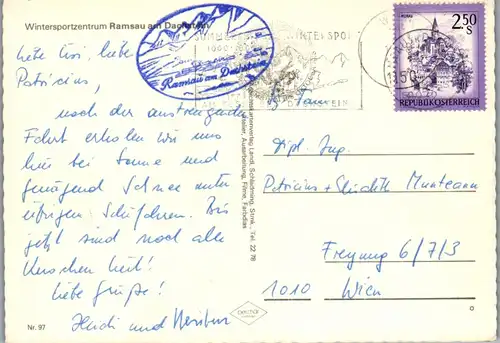 Wintersportzentrum Ramsau am Dachstein
SOMMER
WINTERSPORT
Ramsau am Dachstein
DACHSTEIN
MURAU
2.50
S
REPUBLIK ÖSTERREICH
liebe Susi, liebe
Patricius,
nach der anstrengenden
Fahrt erholen wir uns
hier bei Sonne und
genügend Schnee unter
eifrigem Schifahren. Bis
jetzt sind noch alle
Knochen heil!
liebe Grüße!
Heidi und
Dipl. Ing.
Patricius + Elisabeth Munteanu
Freyung 6/7/3
1010 Wien
Nr. 97